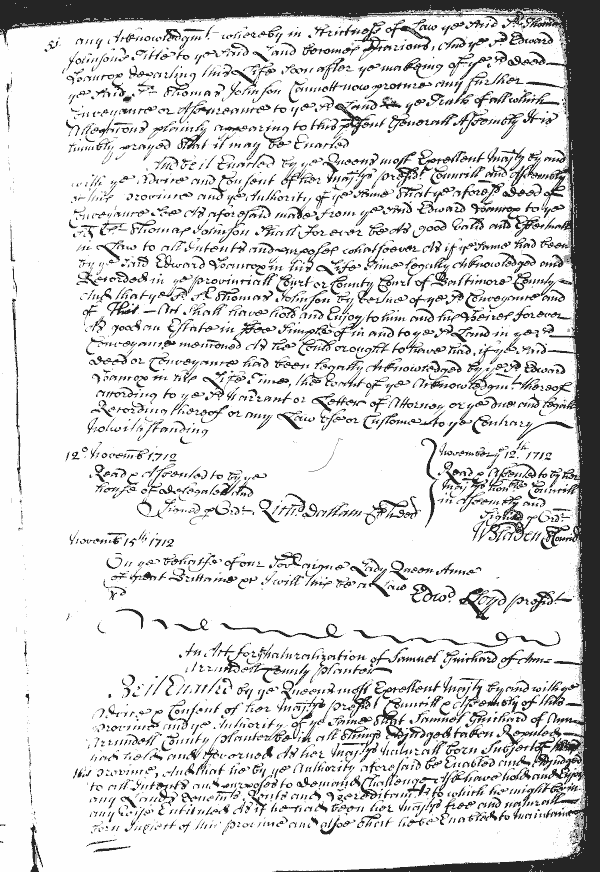 any Acknowledgmt. whereby in Strictness of Law ye said Sr. Thomas
Johnsons Title to ye said Land becomes Precarious, And ye sd Edward
departing this Life Soon after ye making of ye sd deed
ye said Sr. Thomas Johnson Cannott now procure any further
Conveyance or Assureance to ye sd Land ye Truth of all which
Allegations plainly appearing to this present Generall Assembly It is
humbly prayed that it may be Enacted
And be it Enacted by ye Queens most Excellent Majty by and
with ye Advice and Consent of her Majtys presidt. Councill and Assembly
of this Province and ye Authority of ye same That ye aforesd deed of
Conveyance So As aforesaid made from ye said Edward to ye
sd Sr. Thomas Johnson Shall forever be As good Valid and Effectuall
in Law to all Intents and purposes whatsoever As if ye same had been
by ye said Edward in his Life time legally Acknowledged and
Recorded in ye provinciall Court or County Court of Baltimore County
And that ye sd Sr. Thomas Johnson by vertue of ye sd Conveyance and
of This Act shall have hold and Enjoy to him and his heires forever
As good an Estate in ffee Simple of in and to ye sd Land in ye sd
Conveyance menconed As he Could or ought to have had, if ye said
deed or Conveyance had been legally Acknowledged by ye sd Edward
in his Life Time, the Want of ye Acknowledgmt thereof
according to ye sd Warrant or Letter of Attorney or ye due and legall
Recording thereof or any Law Use or Custome to ye Contrary
Notwithstanding
12o Novemb 1712
Read & Assented to by ye
house of delegates And
Signed p Ordr. Richd Dallam Cl h del
November ye 12th 1712
Read & Assented to by her
Majtys honble Councill
in Assembly and
Signed p Ordr
W Bladen Cl Counl
Novemb 15th 1712
On ye behalfe of our Soveraigne Lady Queen Anne
of Great Brittaine &c I will this be a Law Edwd Lloyd presidt
An Act for Naturalization of Samuel Guichard of Ann
Arrundell County planter
Be it Enacted by ye Queens most Excellent Majty by and with ye
Advice & Consent of her Majtys presidt Councill & Assembly of this
Province and ye Authority of ye same That Samuel Guichard of Ann
Arrundell County planter be in all things Adjudged taken Reputed
had held and Governed As her Majtys naturall born Subject of
this province, And that he by ye Authority aforesaid be Enabled and Adjudged
to all Intents and purposes to demand Challenge Ask have hold and Enjoy
any Lands Tenemts Rents and hereditaments to which he might be in
any wise Entituled As if he had been her Majtys free and naturall
born Subject of this province and alsoe that he be Enabled to Maintaine